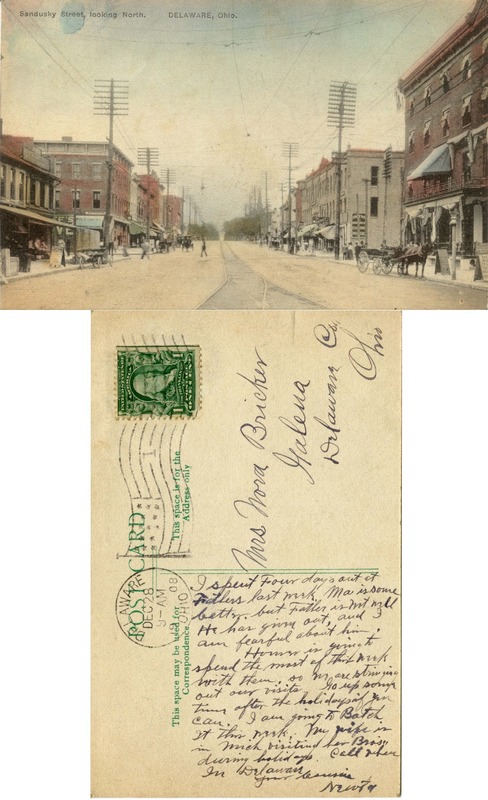 Sandusky Street, looking North. DELAWARE, Ohio.
Mrs Nora Bricker
Galena
Delaware Co,
Ohio
POST CARD
This space is for the
Address only
This space may be used for
Correspondence.
DELAWARE
DEC 28
9-AM
08
OHIO
I spent Four days out at
Fathers last week. Ma is some
better. but Father is not well
He has given out, and I
am fearful about him.
Homer is going to
spend the most of this week
with them. so we are stringing
out our visits. Go up some
time after the holidays if you
can. I am going to Batch
it this week. My wife is
in Mich visiting her Bros,
during holidays. Call when
In Delaware.
Your Cousin